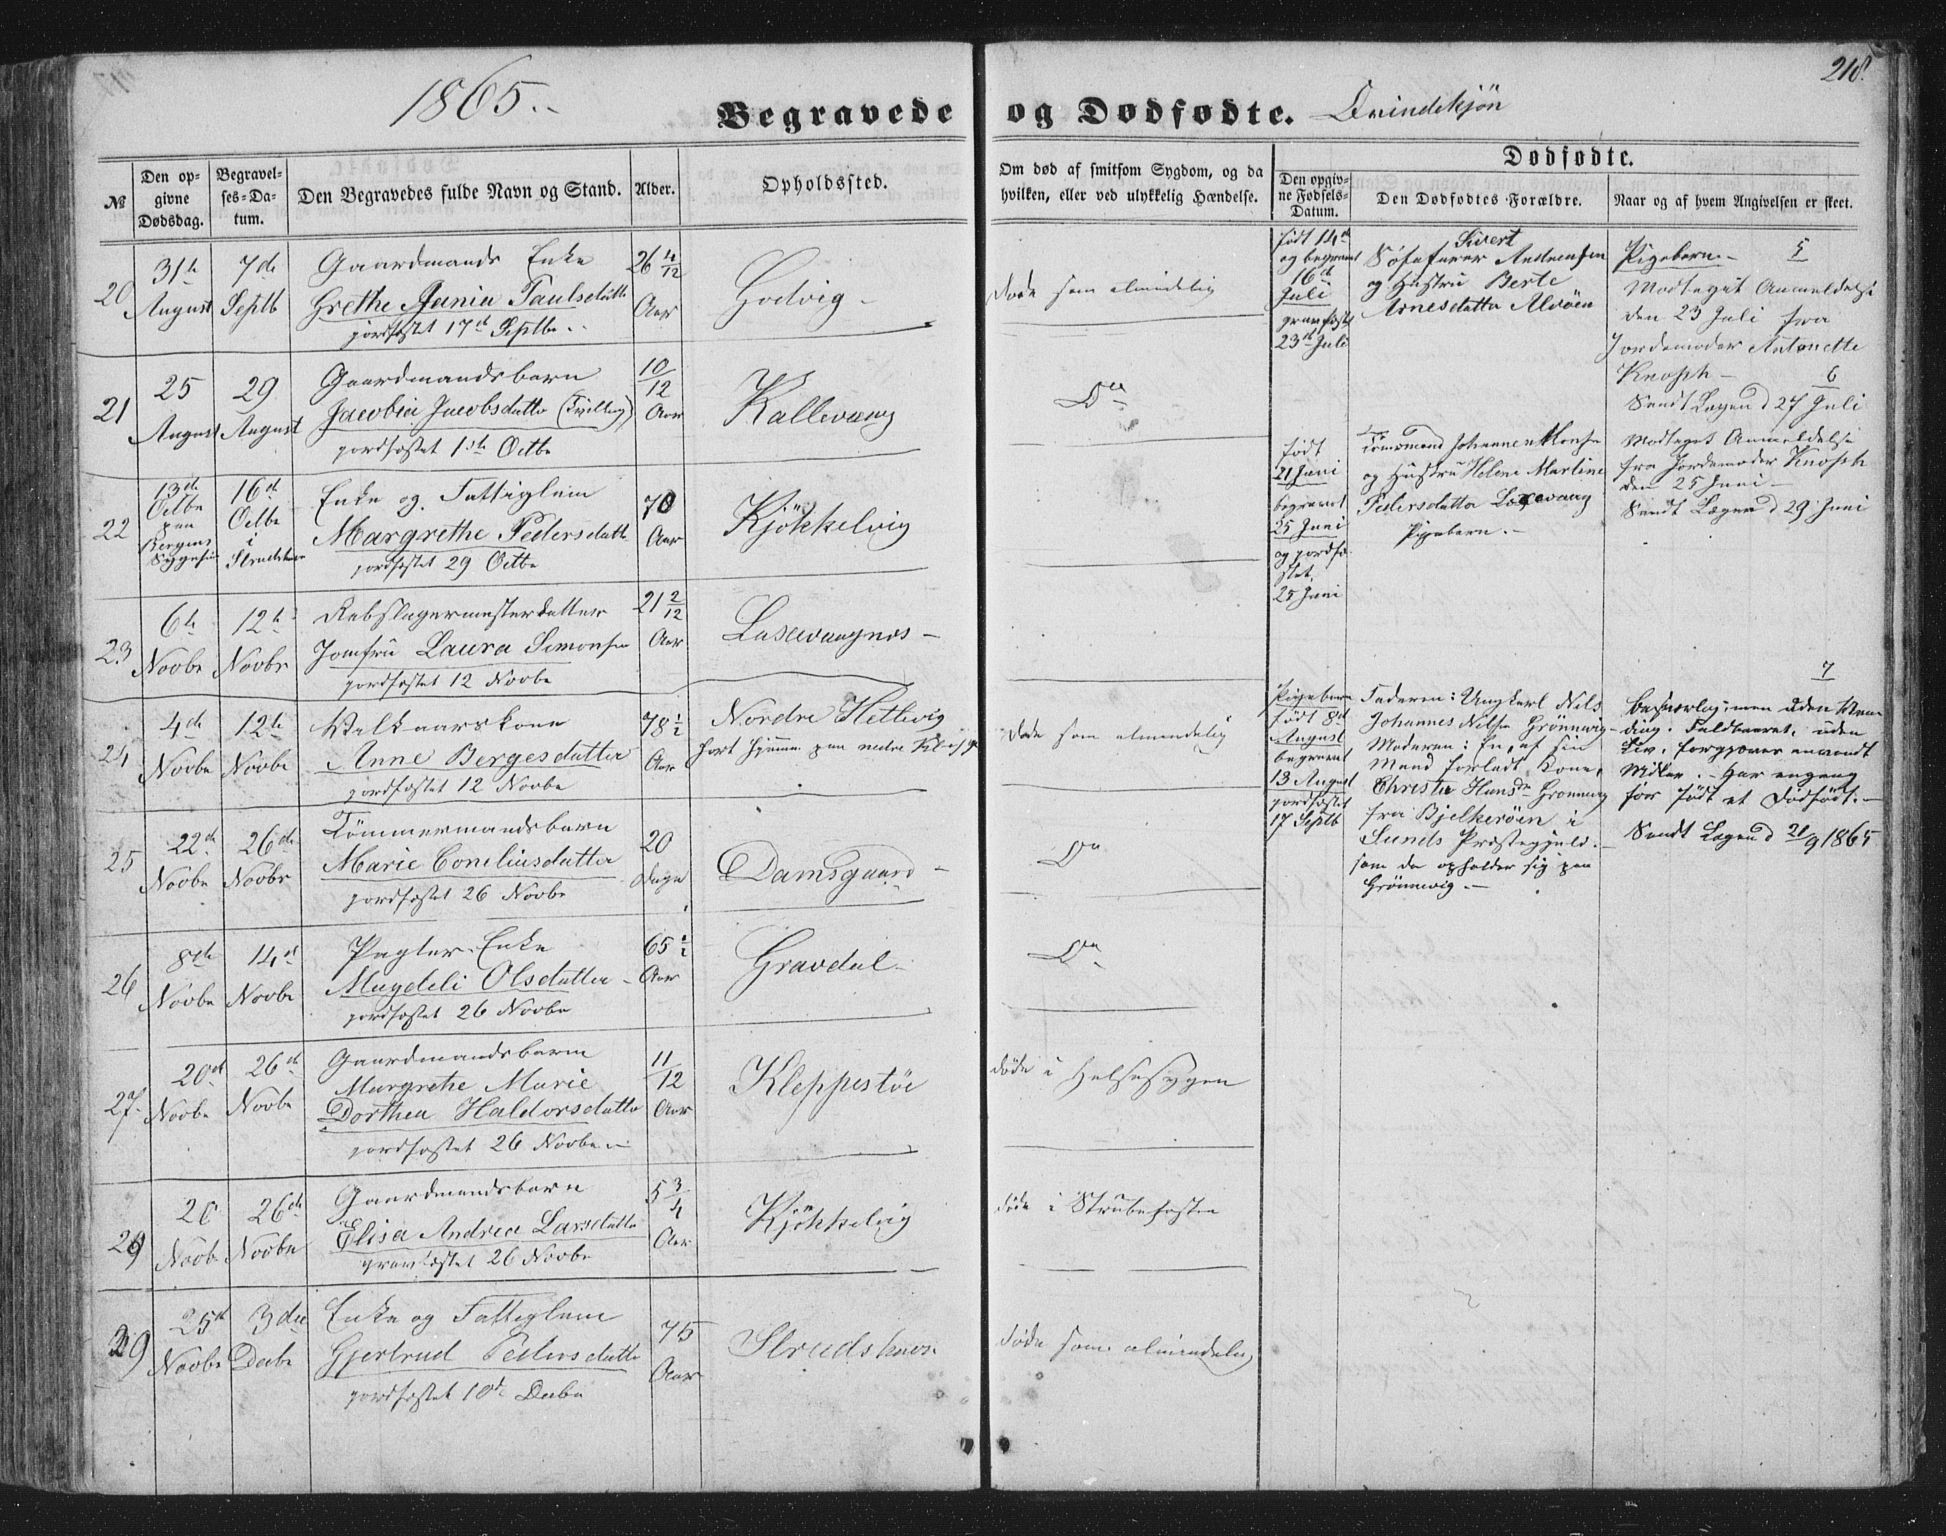 1865.
218.
Begravede og Dødfødte. Qvindekjön
№
Den opgivne Dødsdag.
Begravelses-Datum.
Den Begravedes fulde Navn og Stand.
Alder.
Opholdssted.
Om død af smitsom Sygdom, og da hvilken, eller ved ulykkelig Hændelse.
Dødfødte.
Den opgivne Fødsels-Datum.
Den Dødfødtes Forældre.
Naar og af hvem Angivelsen er skeet.
20
31te August
7de Septb
Gaardmands Enke
Grethe Jania Paulsdatter
jordfæstet 17de Septbr.
26 4/12 Aar
Godvig
Døde som almindelig
21
25 August
29 August
Gaardmandsbarn
Jacobia Jacobsdatter (Tvilling)
jordfæstet 1ste Octbr
10/12 Aar
Kallevaag
Do
22
13de Octbr paa Bergens Sygehus
16de Octbr i
Enke og Fattiglem
Margrethe Pedersdatter
jordfæstet 29 Octbr
70 Aar
Kjökkelvig
23
6te Novbr
12te Novbr
Rebslagermesterdatter
Jomfru Laura Simonsen
jordfæstet 12 Novbr
21 2/12 Aar
Laxevaagnæs
24
4de Novbr
12te Novbr
Vilkaarskone
Anne Bergesdatter
jordfæstet 12 Novbr
78 1/2 Aar
Nordre Hetlevig
Døde som almindelig
25
22de Novbr
26de Novbr
Tömmermandsbarn
Marie Corneliusdatter
jordfæstet 26 Novbr
20 Dage
Damsgaard
Do
26
8de Novbr
14de Novbr
Pagter Enke
Magdeli Olsdatter
jordfæstet 26 Novbr
65 1/2 Aar
Gravdal
Do
27
20de Novbr
26de Novbr
Gaardmandsbarn
Margrethe Marie
Dorthea Haldorsdatter
jordfæstet 26 Novbr
11/12 Aar
Kleppestöe
døde i
20 Novb
26de Novbr
Gaardmandsbarn
Elisa Andrea Larsdatter
gravfæstet 26 Novbr
5 3/4 Aar
Kjökkelvig
døde i Strubehoste
29
25de Novbr
3die Decbr
Enke og Fattiglem
Gjertrud Pedersdatter
jordfæstet 10de Decbr
75 Aar
Strudshavn
døde som almindelig
født 14de
og begravet
16de
Juli
gravfæstet
23de Juli
Sivert
Søfarer Andreassen
og Hustru Berte
Arnesdatter Alvöen
5
Pigebarn
Modtaget Anmeldelse
den 23 Juli fra
Jordemoder Antonette
Knoph
Sendt Lægen d 27 Juli
6
født
21 Juni
begravet
25 Juni
og jordfæ-
stet
25 Juni
Tömmermand Johannes
og Hustru Helene Martine
Pedersdatter Laxevaag
Pigebarn.
Modtaget Anmeldelse
fra Jordemoder Knoph
den 25 Juni
Sendt Lægen d 29 Juni
7
Pigebarn
født 8de
August
begravet
13 August
jordfæstet
17 Septb
Faderen: Ungkarl Nils
Johannes Nilsen Grönnevig
Moderen: En, af sin
Mand forladt, Kone,
Christie Hansdr Grönnevig
fra Bjelkeröen i
Sunds Præstegjeld.
som da opholder sig paa
Grönnevig.
uden
Liv, forgjæves anvendt
Midler. Har engang
før født et Dødfødt.
Sendt Lægen d 21/9 1865